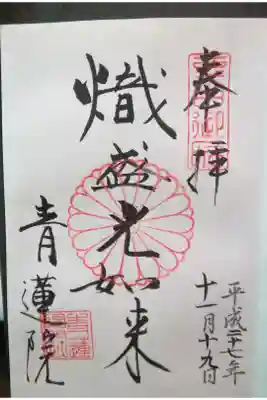 奉拝
平成二十七年
十一月十九日
熾盛光如来
青蓮院